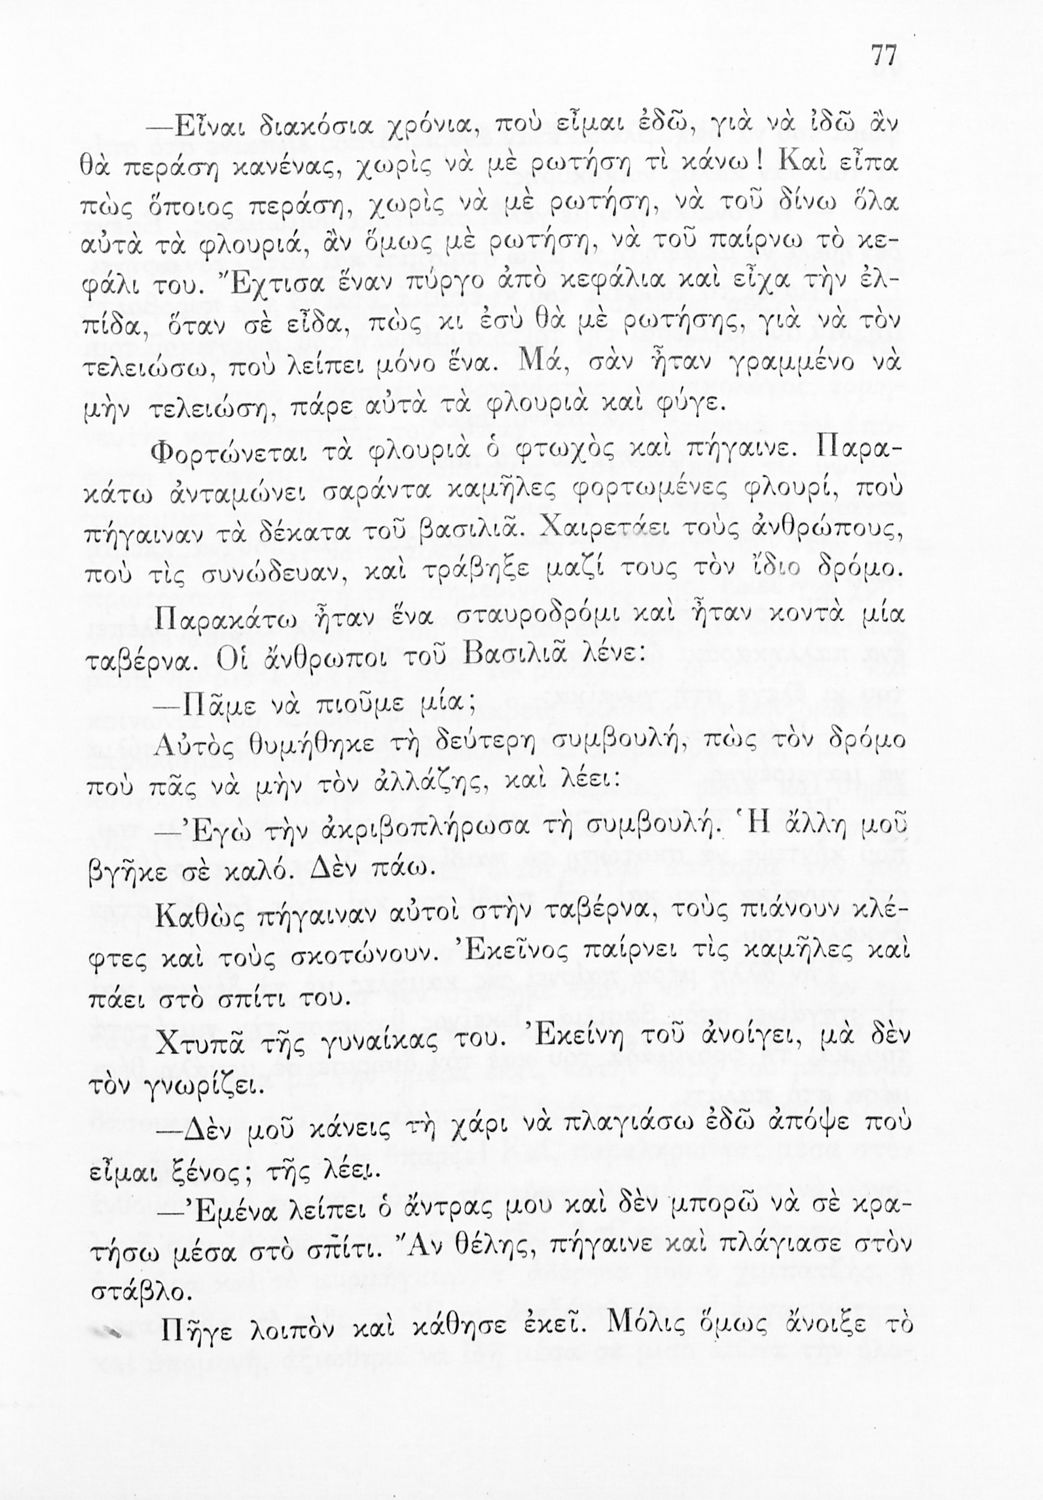 77
—Εἶναι διακόσια χρόνια, ποὺ εἶμαι ἐδῶ, γιὰ νὰ ἰδῶ ἂν
θὰ περάση κανένας, χωρὶς νὰ μὲ ρωτήση τὶ κάνω! Καὶ εἶπα
πὼς ὅποιος περάση, χωρὶς νὰ μὲ ρωτήση, νὰ τοῦ δίνω ὅλα
αὐτὰ τὰ φλουριά, ἂν ὅμως μὲ ρωτήση, νὰ τοῦ παίρνω τὸ κε-
φάλι του. Ἔχτισα ἕναν πύργο ἀπὸ κεφάλια καὶ εἶχα τὴν ἐλ-
πίδα, ὅταν σὲ εἶδα, πὼς κι ἐσὺ θὰ μὲ ρωτήσης, γιὰ νὰ τὸν
τελειώσω, ποὺ λείπει μόνο ἕνα. Μά, σὰν ἦταν γραμμένο νὰ
μὴν τελειώση, πάρε αὐτὰ τὰ φλουριὰ καὶ φύγε.
Φορτώνεται τὰ φλουριὰ ὁ φτωχὸς καὶ πήγαινε. Παρα-
κάτω ἀνταμώνει σαράντα καμῆλες φορτωμένες φλουρί, ποὺ
πήγαιναν τὰ δέκατα τοῦ βασιλιᾶ. Χαιρετάει τοὺς ἀνθρώπους,
ποὺ τὶς συνώδευαν, καὶ τράβηξε μαζί τους τὸν ἴδιο δρόμο.
Παρακάτω ἦταν ἕνα σταυροδρόμι καὶ ἦταν κοντὰ μία
ταβέρνα. Οἱ ἄνθρωποι τοῦ Βασιλιᾶ λένε:
—Πᾶμε νὰ πιοῦμε μία;
Αὐτὸς θυμήθηκε τὴ δεύτερη συμβουλή, πὼς τὸν δρόμο
ποὺ πᾶς νὰ μὴν τὸν ἀλλάζης, καὶ λέει:
—Ἐγὼ τὴν ἀκριβοπλήρωσα τὴ συμβουλή. Ἡ ἄλλη μοῦ
βγῆκε σὲ καλό. Δὲν πάω.
Καθὼς πήγαιναν αὐτοὶ στὴν ταβέρνα, τοὺς πιάνουν κλέ-
φτες καὶ τοὺς σκοτώνουν. Ἐκεῖνος παίρνει τὶς καμῆλες καὶ
πάει στὸ σπίτι του.
Χτυπᾶ τῆς γυναίκας του. Ἐκείνη τοῦ ἀνοίγει, μὰ δὲν
τὸν γνωρίζει.
—Δὲν μοῦ κάνεις τὴ χάρι νὰ πλαγιάσω ἐδῶ ἀπόψε ποὺ
εἶμαι ξένος; τῆς λέει.
—Ἐμένα λείπει ὁ ἄντρας μου καὶ δὲν μπορῶ νὰ σὲ κρα-
τήσω μέσα στὸ σπίτι. Ἂν θέλης, πήγαινε καὶ πλάγιασε στὸν
στάβλο.
Πῆγε λοιπὸν καὶ κάθησε ἐκεῖ. Μόλις ὅμως ἄνοιξε τὸ